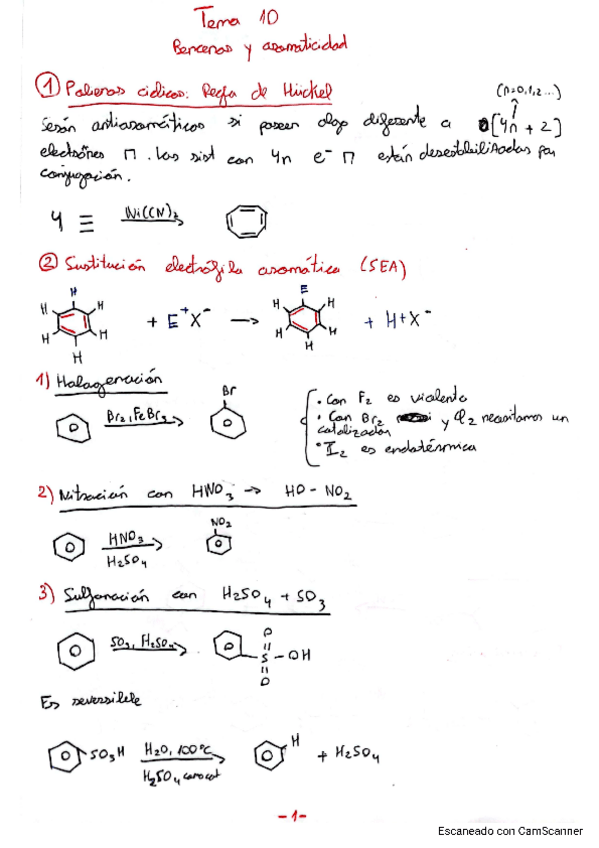 Tema 10
Bencenos y aromaticidad
1 Polienos cíclicos: Regla de Hückel
(n=0,1,2...)
Serán antiaromáticos si poseen algo diferente a [4n + 2]
electrones π. Los sist con 4n e⁻ π están desestabilizados por
conjugación.
4 ≡ Ni(CN)₂
2 Sustitución electrófila aromática (SEA)
H H H H H H + E⁺X⁻ → E H H H H H + H+X⁻
1) Halogenación
Br₂, FeBr₃ Br
· Con F₂ es violenta
· Con Br₂ y Cl₂ necesitamos un
catalizador
· I₂ es endotérmica
2) Nitración con HNO₃ → HO - NO₂
HNO₃
H₂SO₄
NO₂
3) Sulfonación con H₂SO₄ + SO₃
SO₃, H₂SO₄
O
S - OH
O
Es reversible
SO₃H H₂O, 100°C H + H₂SO₄
H₂SO₄ concat
-1-
Escaneado con CamScanner